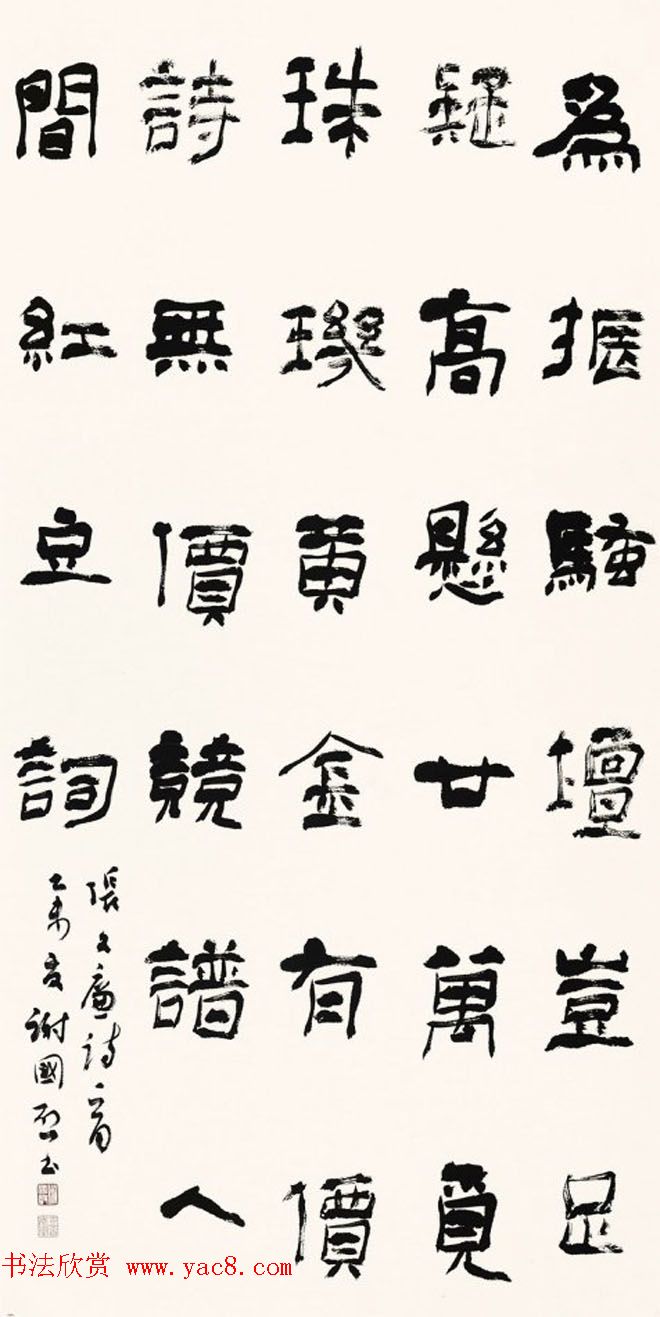 為振騷壇豈足
疑高懸廿萬覓
珠璣黃金有價
詩無價競譜人
間紅豆詞
張文廉詩一首
乙未夏謝國启書
书法欣赏 www.yac8.com